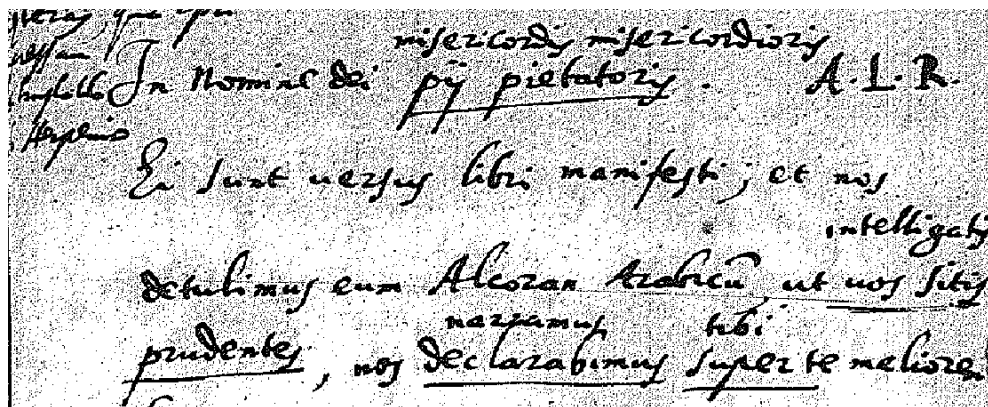 misericordis misericordioris
In Nomine dei pij pietatoris. A. L. R.
Ei sunt uersus libri manifesti; et nos
intelligatis
detulimus eum Alcoran Arabicũ, ut uos sitis
narramus tibi
prudentes, nos declarabimus super te meliorem